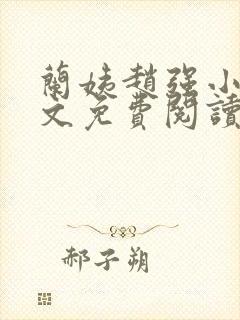 蘭姨趙強小
文免費閱讀
郝子朔